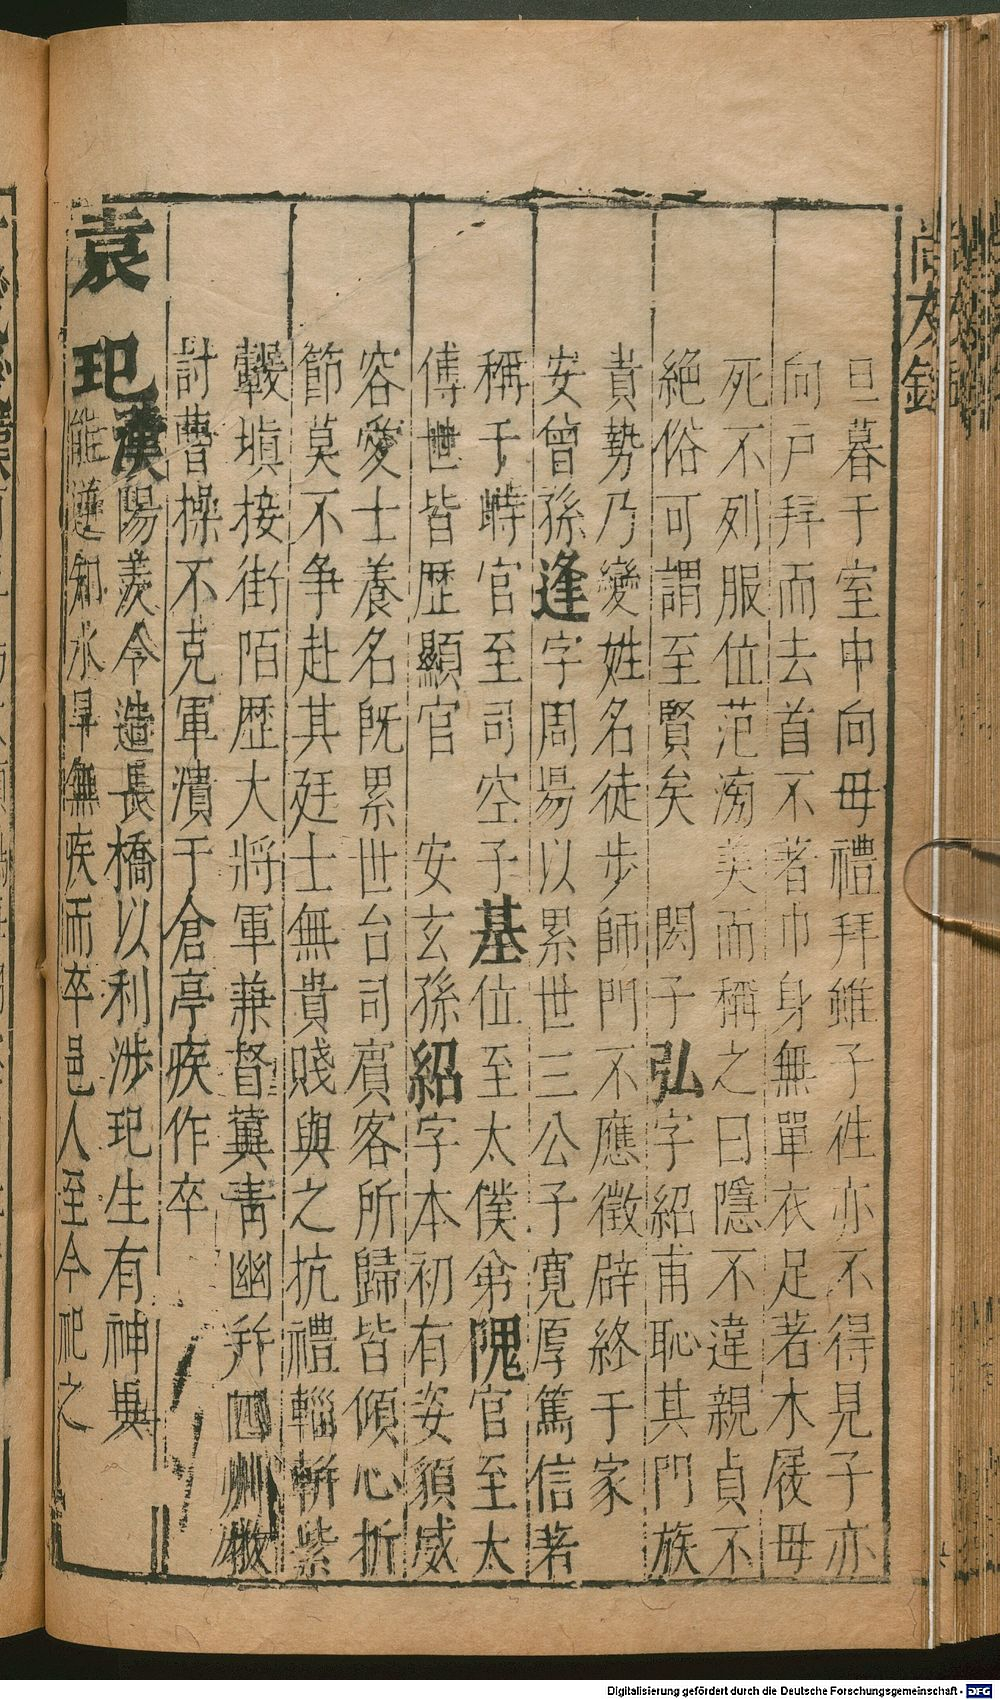 尚友錄
旦暮于室中向母禮拜雖子徃亦不得見子亦
向戶拜而去首不著巾身無單衣足著木屐母
死不列服位范滂美而稱之曰隱不違親貞不
絕俗可謂至賢矣 閎子弘字紹甫恥其門族
貴勢乃變姓名徒步師門不應徵辟終于家
安曾孫逢字周易以累世三公子寛厚篤信著
稱于時官至司空子基位至太僕弟隗官至太
傅世皆歴顯官 安玄孫紹字本初有姿貌威
容愛士養名旣累世台司賔客所歸皆傾心折
節莫不争赴其廷士無貴賤與之抗禮輜軿紫
轂塡接街陌歴大將軍兼督冀靑幽并四州
討曹操不克軍潰于倉亭疾作卒
袁玘漢陽羨令造長橋以利涉玘生有神異
能逆知水旱無疾而卒邑人至今祀之
Digitalisierung gefördert durch die Deutsche Forschungsgemeinschaft - DFG